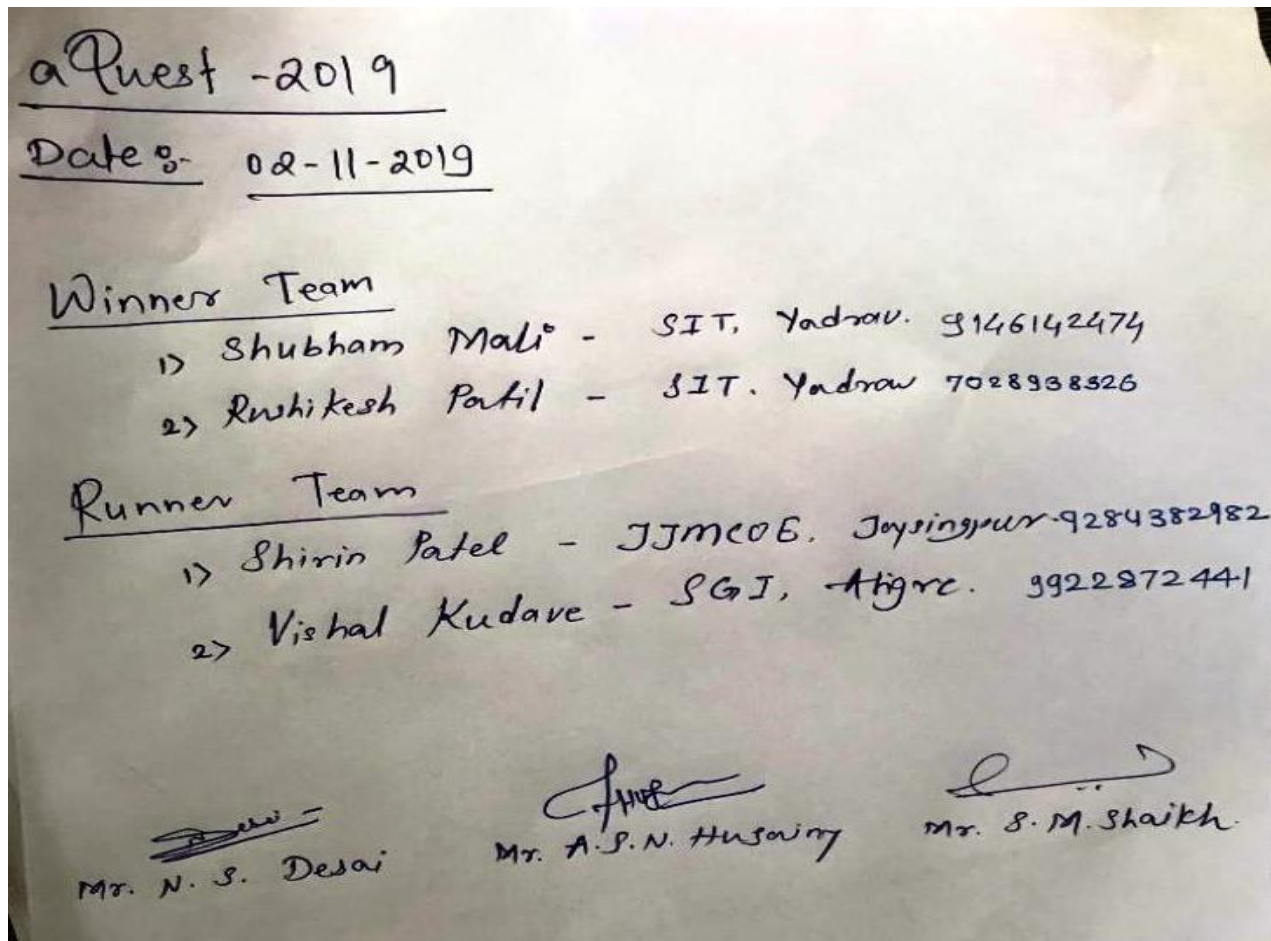 aQuest -2019
Date :- 02-11-2019
Winner Team
1> Shubham Mali - SIT, Yadrav. 9146142474
2> Rushikesh Patil - SIT. Yadrav 7028938326
Runner Team
1) Shirin Patel - JJMCOE. Jaysingpur-9284382982
2> Vishal Kudave - SGI, Atigre. 9922872441
Mr. N. S. Desai Mr. A.S.N. Husainy Mr. S. M. Shaikh.